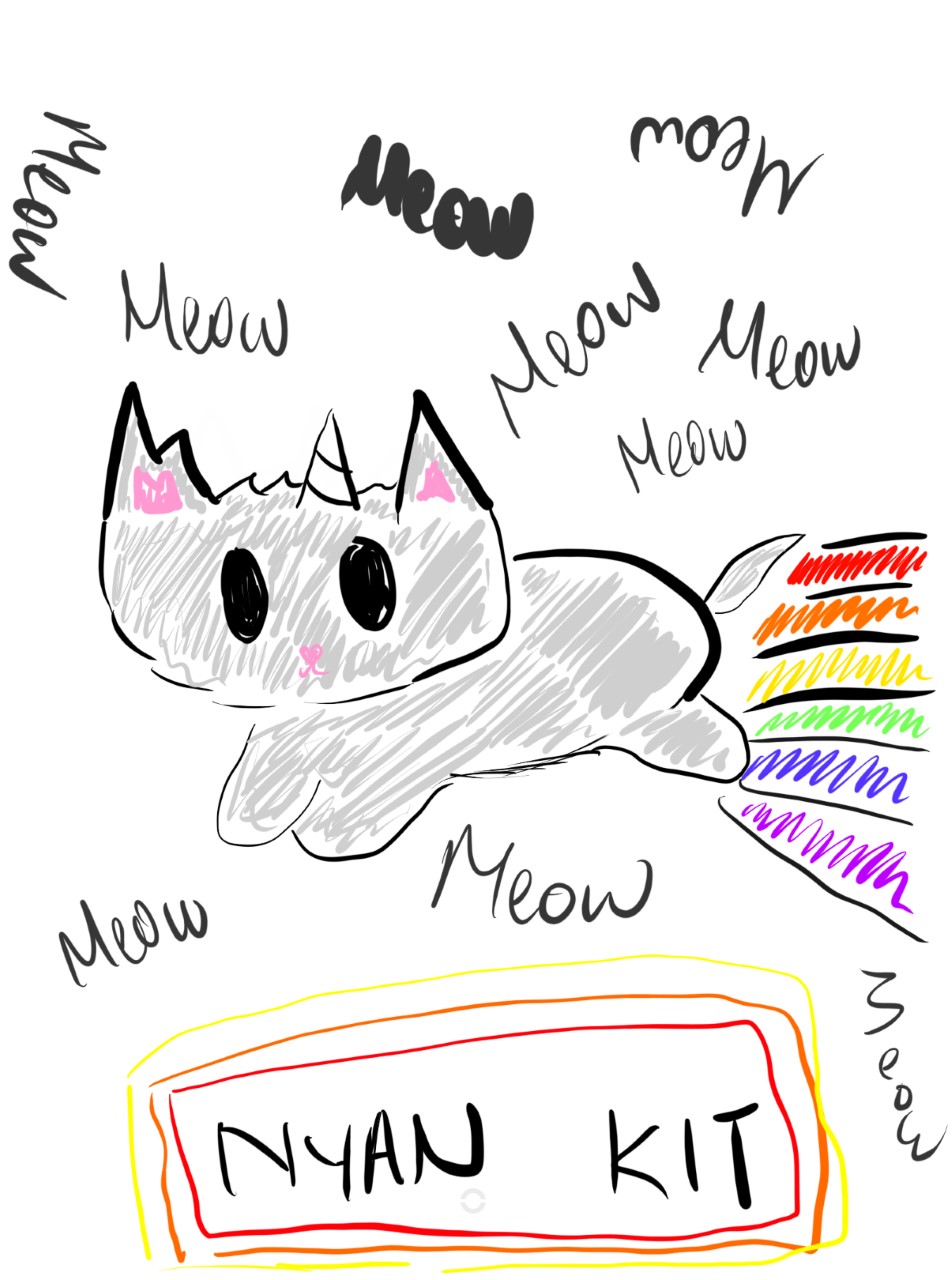 Meow
Meow
Meow
Meow
Meow
Meow
Meow
Meow
Meow
Meow
NYAN KIT